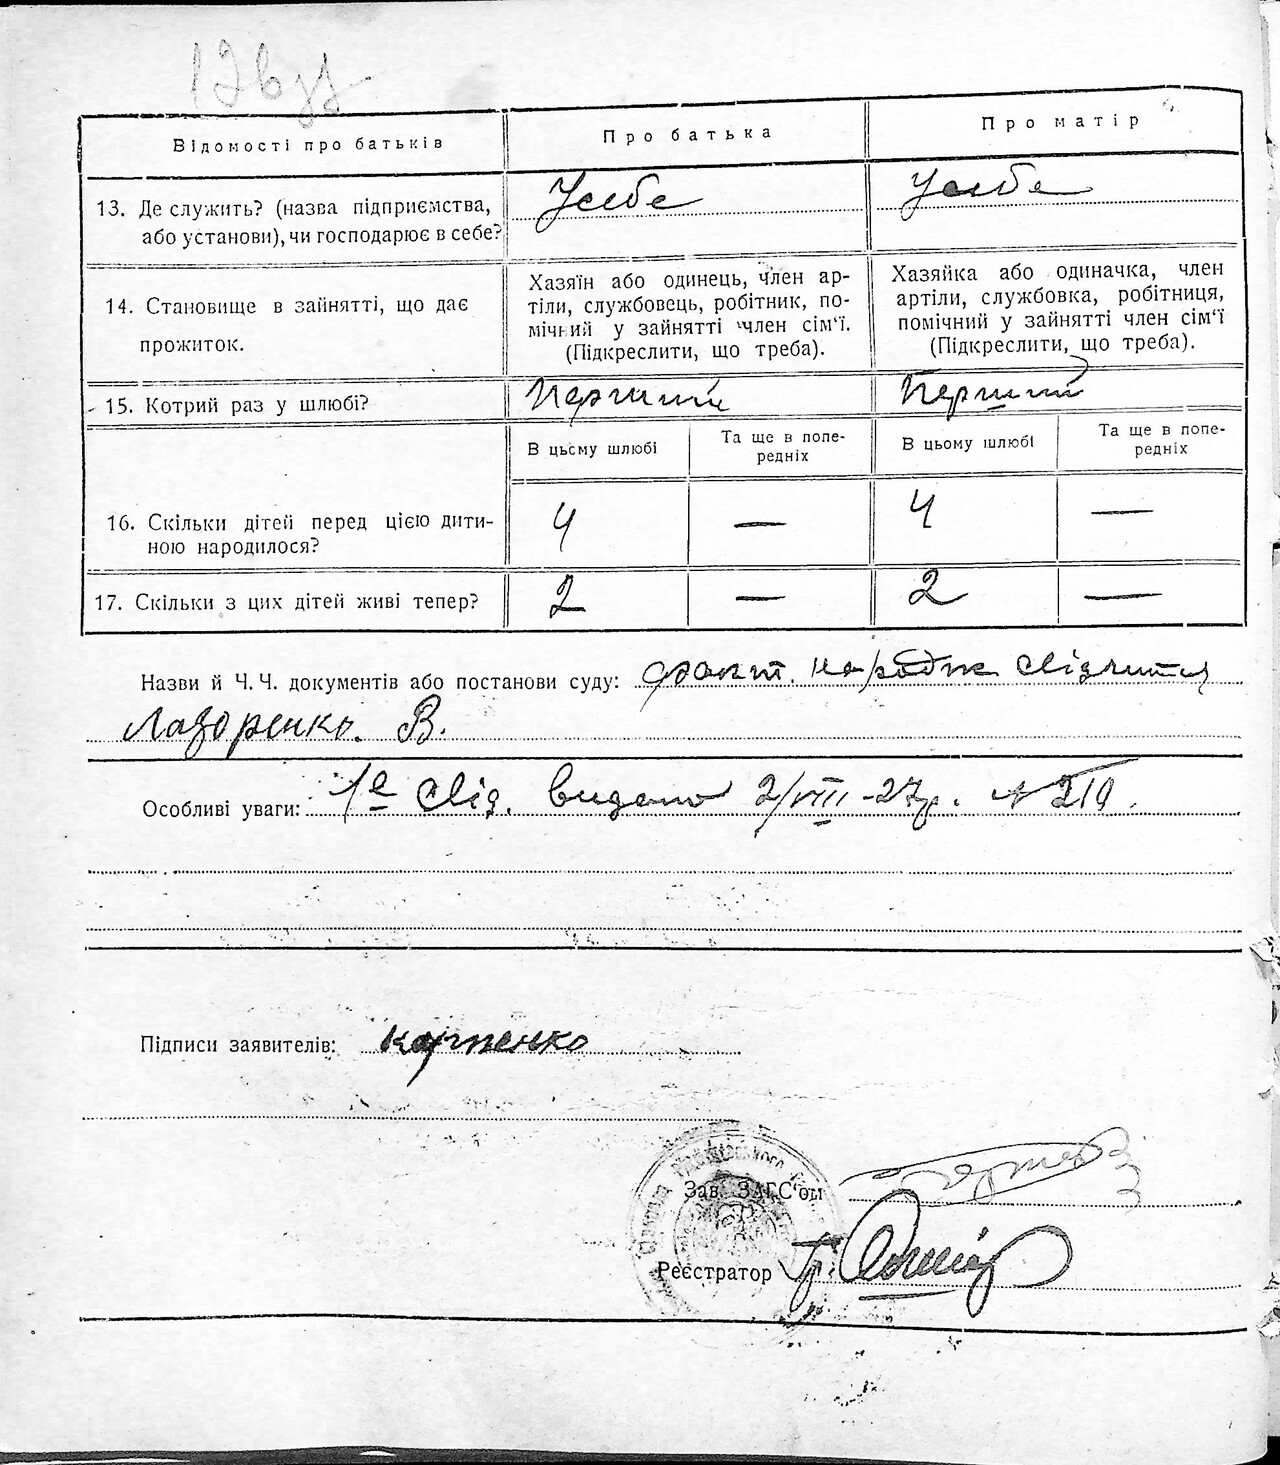 Відомості про батьків
Про батька
Про матір
13. Де служить? (назва підприємства,
або установи), чи господарює в себе?
У себе
У себе
14. Становище в зайнятті, що дає
прожиток.
Хазяїн або одинець, член ар-
тіли, службовець, робітник, по-
мічний у зайнятті член сім'ї.
(Підкреслити, що треба).
Хазяйка або одиначка, член
артіли, службовка, робітниця,
помічний у зайнятті член сім'ї
(Підкреслити, що треба).
15. Котрий раз у шлюбі?
Перший
Перший
В цьому шлюбі
Та ще в попе-
редніх
В цьому шлюбі
Та ще в попе-
редніх
16. Скільки дітей перед цією дити-
ною народилося?
4 — 4 —
17. Скільки з цих дітей живі тепер?
2 — 2 —
Назви й Ч. Ч. документів або постанови суду: факт. народж свідчить
Лазоренко. В.
Особливі уваги: 1е свід. видано 2/VIII-27р. № 210.
Підписи заявителів: Карпенко
Зав. ЗАГС'ом
Реєстратор